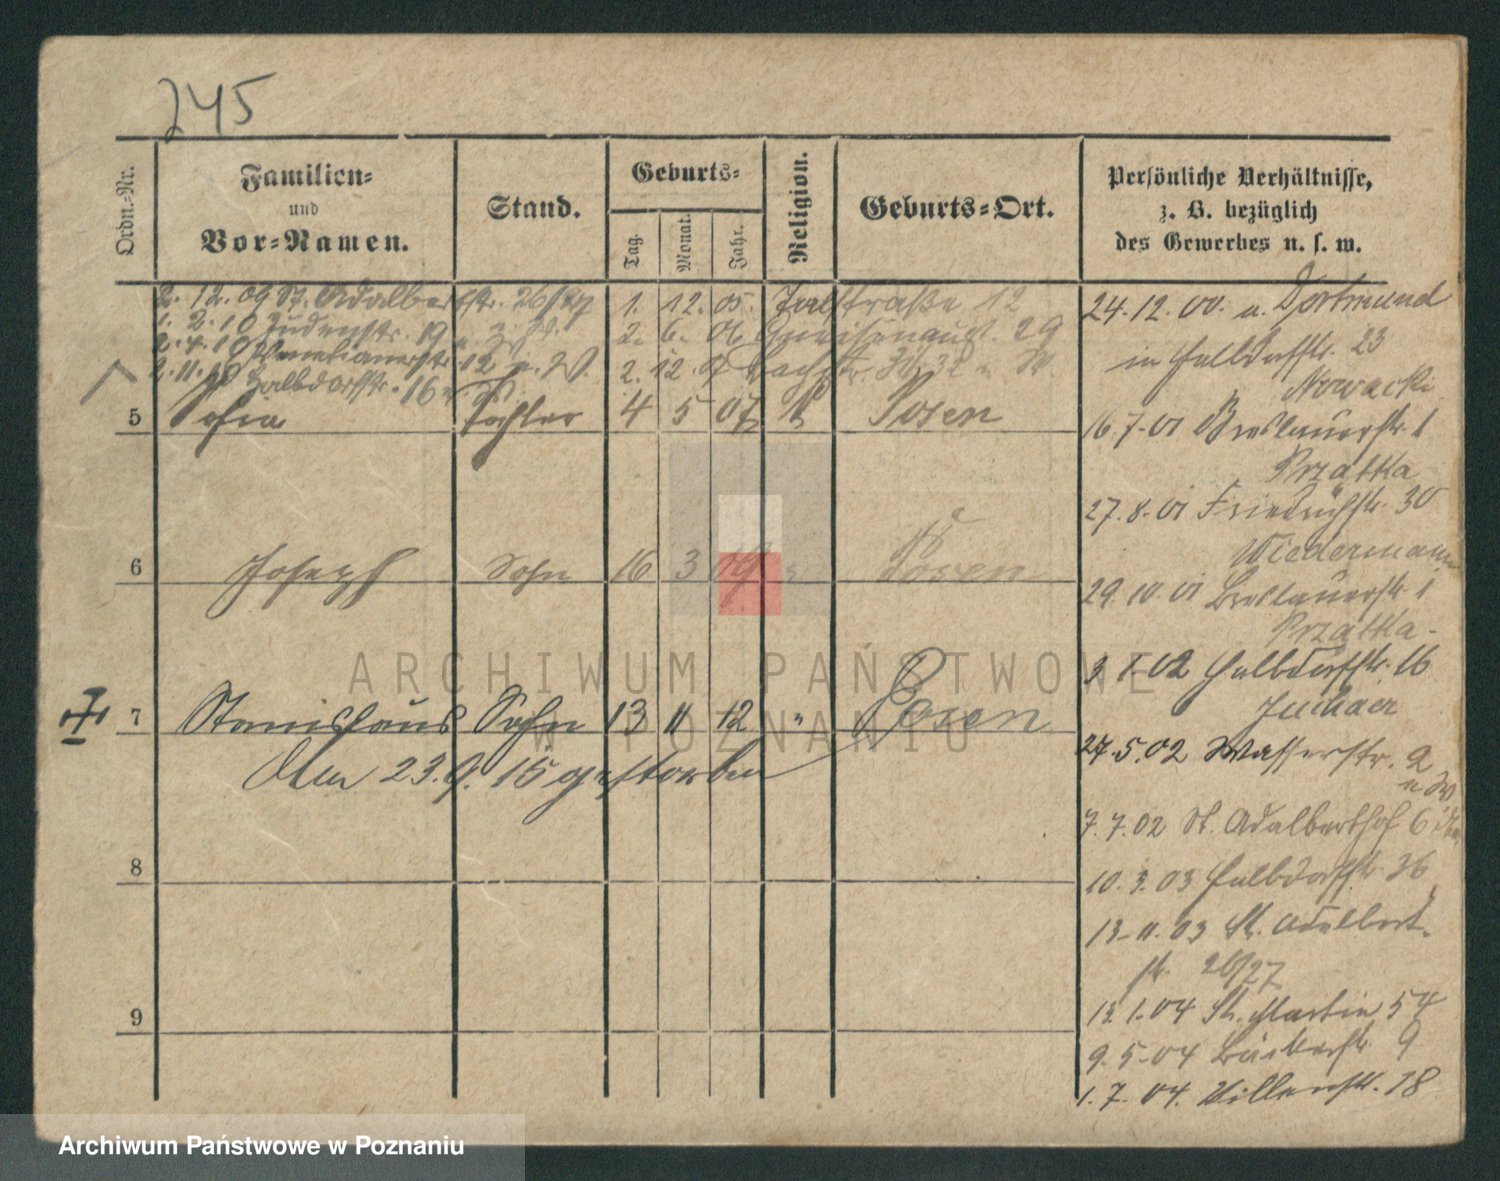 245
Ordn.-Nr.
Familien-
und
Vor-Namen.
Stand.
Geburts-
Tag.
Monat.
Jahr.
Religion.
Geburts-Ort.
Persönliche Verhältnisse,
z. B. bezüglich
des Gewerbes u. s. w.
2. 12. 09 St. Adalbertstr. 26/27
1. 2. 10 Judenstr. 19
2. 4. 10 12 u. W.
2. 11. 10 Halbdorfstr. 16
1. 12. 05. Talstraße 12
2. 6. 06 Gneisenaust. 29
2. 12. 31/32 u. W.
5 Sofia Tochter 4 5 07 k Posen
6 Joseph Sohn 16 3 09 " Posen
7 Stanislaus Sohn 13 11 12 " Posen
Am 23. 9. 15 gestorben
8
9
24. 12. 00. u. Dortmund
in Halbdorfstr. 23
Nowacki
16. 7. 01 Breslauerstr. 1
Przatka
27. 8. 01 Friedrichstr. 30
Wiedermann
29. 10. 01 Breslauerstr. 1
Przatka.
3. 1. 02 Halbdorfstr. 16
27. 5. 02 Wasserstr. 2
7. 7. 02 St. Adalberthof 6
10. 3. 03 Halbdorfstr. 36
13. 11. 03 St. Adalbert-
str. 26/27
13. 1. 04 St. Martin 54
9. 5. 04 Bäckerstr. 9
1. 7. 04. 18
ARCHIWUM PAŃSTWOWE
W POZNANIU
Archiwum Państwowe w Poznaniu